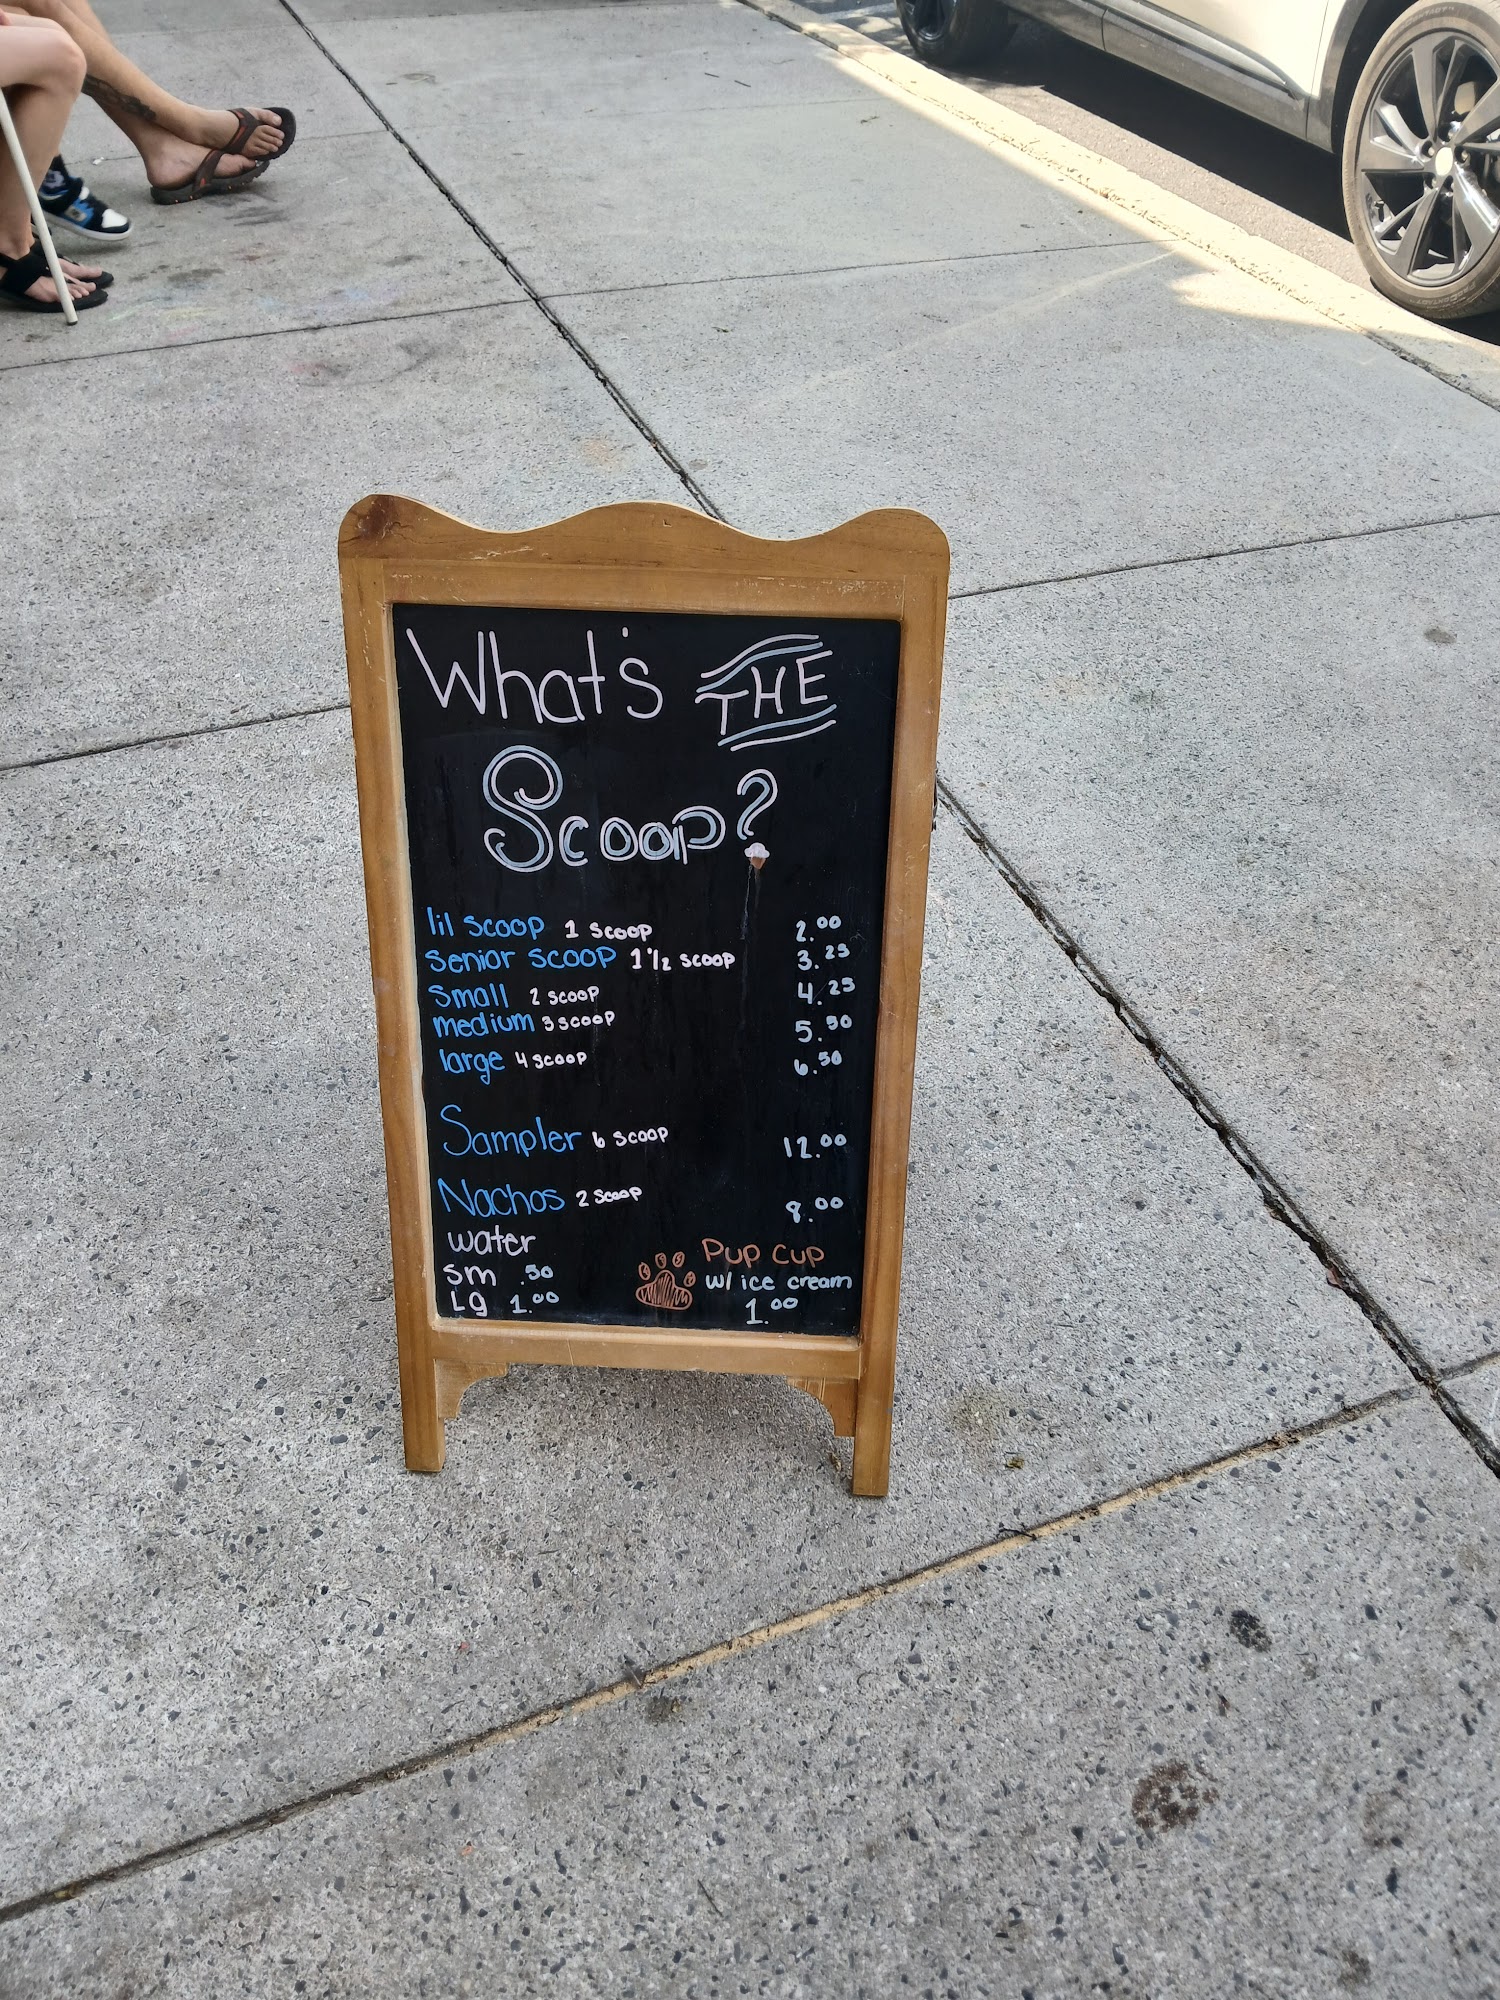 What's THE
Scoop?
lil scoop 1 scoop 2.00
senior scoop 1 1/2 scoop 3.25
small 2 scoop 4.25
medium 3 scoop 5.50
large 4 scoop 6.50
Sampler 6 scoop 12.00
Nachos 2 scoop 8.00
water
sm .50
Lg 1.00
Pup Cup
w/ ice cream
1.00